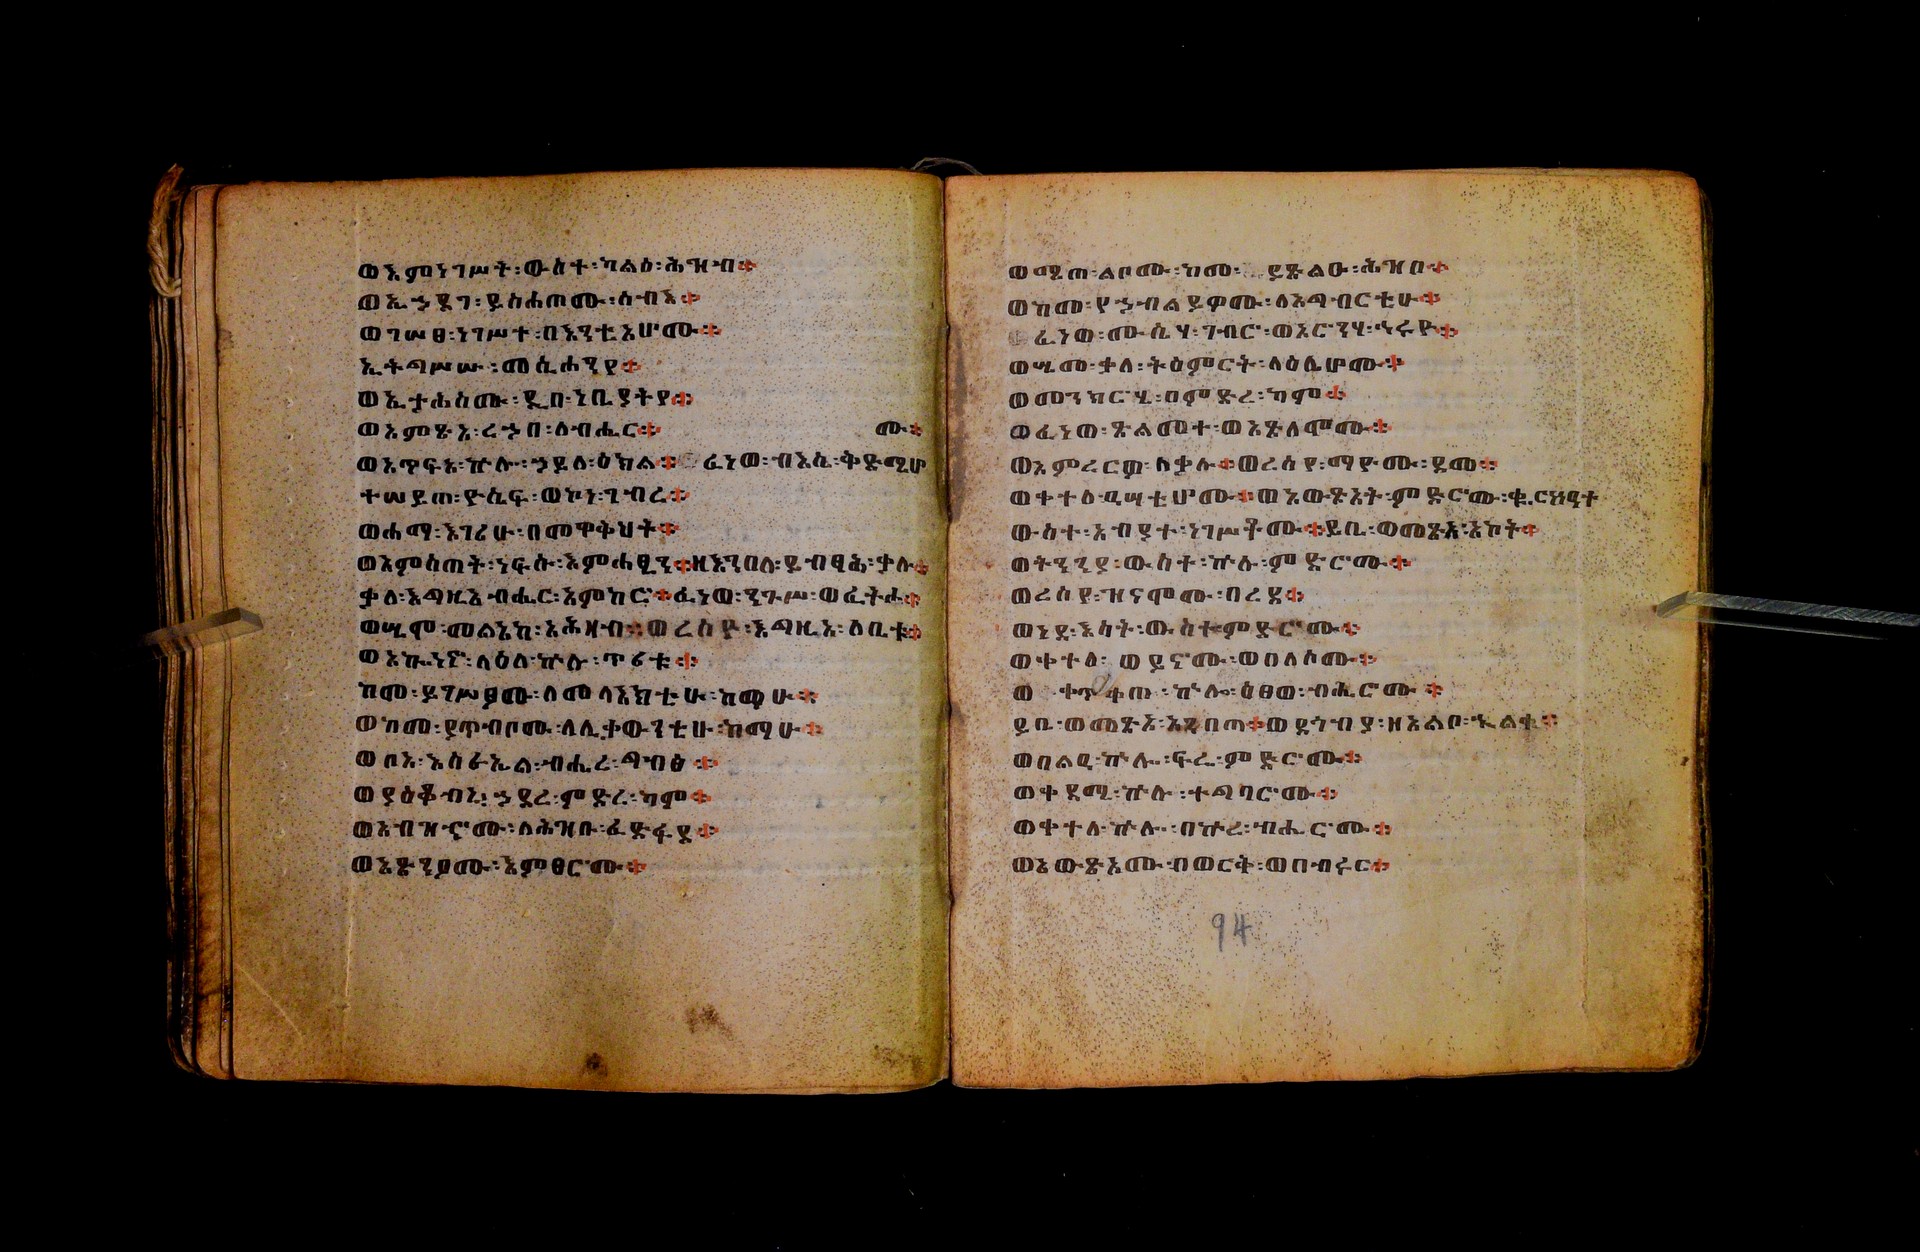 ወእምነገሥት፡ውስተ፡ካልዕ፡ሕዝብ፨
ወኢኃደገ፡ይስሐጦሙ፡ሰብእ፨
ወገሠፀ፡ነገሥተ፡በእንቲአሆሙ፨
ኢትግሥሡ፡መሲሐንየ፨
ወኢታሕስሙ፡ዲበ፡ነቢያትየ፨
ወአምጽአ፡ረኃበ፡ለብሔር፨ ሙ፨
ወአጥፍአ፡ኵሉ፡ኃይለ፡ዕክል፨ ፈነወ፡ብእሴ፡ቅድሜሆ
ተሠይጠ፡ዮሴፍ፡ወኮነ፡ገብረ፨
ወሐማ፡እገሪሁ፡በመዋቅህት፨
ወአምሰጠት፡ነፍሱ፡እምሐፂን፨ዘእንበለ፡ይብፂሕ፡ቃሉ፨
ቃለ፡እግዚአብሔር፡አምከሮ፨ፈነወ፡ንጉሥ፡ወፈትሖ፨
ወሢሞ፡መልአከ፡አሕዛብ፨ወረሰዮ፡እግዚአ፡ለቤቱ፨
ወአኰነኖ፡ላዕለ፡ኵሉ፡ጥሪቱ፨
ከመ፡ይገሥፆሙ፡ለመላእክቲሁ፡ከማሁ፨
ወከመ፡ያጥብቦሙ፡ለሊቃውንቲሁ፡ከማሁ፨
ወቦአ፡እስራኤል፡ብሔረ፡ግብፅ፨
ወያዕቆብኒ፡ኃደረ፡ምድረ፡ካም፨
ወአብዝኆሙ፡ለሕዝቡ፡ፈድፋደ፨
ወአጽንዖሙ፡እምፀሮሙ፨
ወሜጠ፡ልቦሙ፡ከመ፡ ይጽልዑ፡ሕዝቦ፨
ወከመ፡የኃብልይዎሙ፡ለአግብርቲሁ፨
ፈነወ፡ሙሴሃ፡ገብሮ፡ወአሮንሃ፡ኅሩዮ፨
ወሤመ፡ቃለ፡ትዕምርት፡ላዕሌሆሙ፨
ወመንክሮሂ፡በምድረ፡ካም፨
ወፈነወ፡ጽልመተ፡ወአጽለሞሙ፨
ወአምረርዎ፡ለቃሉ፨ወረሰየ፡ማዮሙ፡ደመ፨
ወቀተለ፡ዓሣቲሆሙ፨ወአውጽአት፡ምድሮሙ፡ቈርነዓተ
ውስተ፡አብያተ፡ነገሥቶሙ፨ይቤ፡ወመጽአ፡አኮት፨
ወትንንያ፡ውስተ፡ኵሉ፡ምድሮሙ፨
ወረሰየ፡ዝናሞሙ፡በረደ፨
ወነደ፡እሳት፡ውስተ፡ምድሮሙ፨
ወቀተለ፡ ወይኖሙ፡ወበለሶሙ፨
ወ ቀጥቀጠ፡ኵሎ፡ዕፀወ፡ብሔሮሙ፨
ይቤ፡ወመጽአ፡አንበጣ፨ወደጎብያ፡ዘአልቦ፡ኈልቈ፨
ወበልዐ፡ኵሎ፡ፍሬ፡ምድሮሙ፨
ወቀደሜ፡ኵሉ፡ተግባሮሙ፨
ወቀተለ፡ኵሎ፡በኵረ፡ብሔሮሙ፨
ወአውጽአሙ፡በወርቅ፡ወበብሩር፨
94